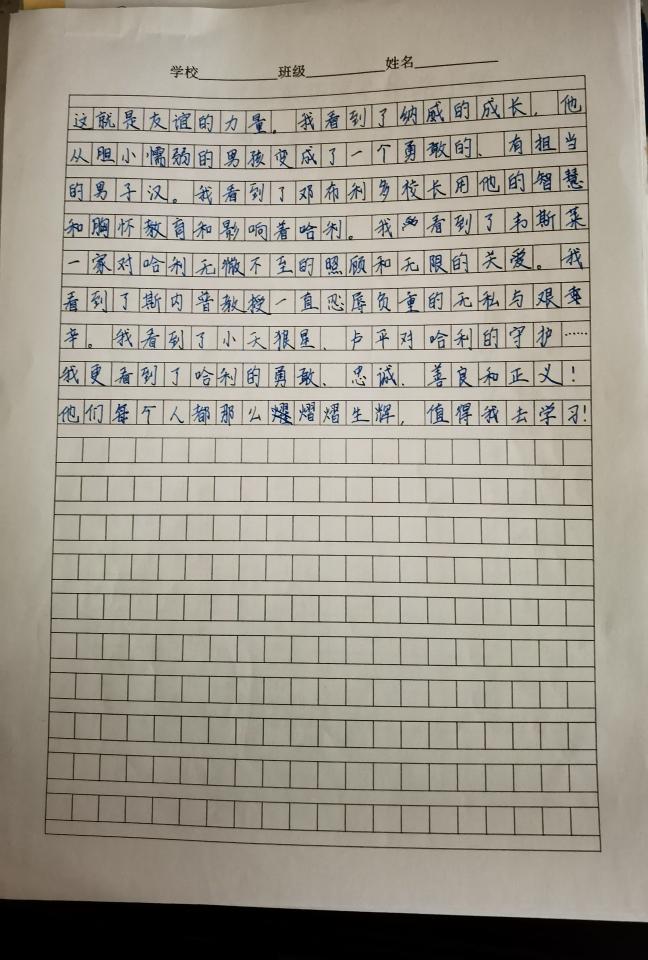 学校 班级 姓名
这就是友谊的力量。我看到了纳威的成长，他
从胆小懦弱的男孩变成了一个勇敢的、有担当
的男子汉。我看到了邓布利多校长用他的智慧
和胸怀教育和影响着哈利。我看到了韦斯莱
一家对哈利无微不至的照顾和无限的关爱。我
看到了斯内普教授一直忍辱负重的无私与艰
辛。我看到了小天狼星、卢平对哈利的守护……
我更看到了哈利的勇敢、忠诚、善良和正义！
他们每个人都那么熠熠生辉，值得我去学习！